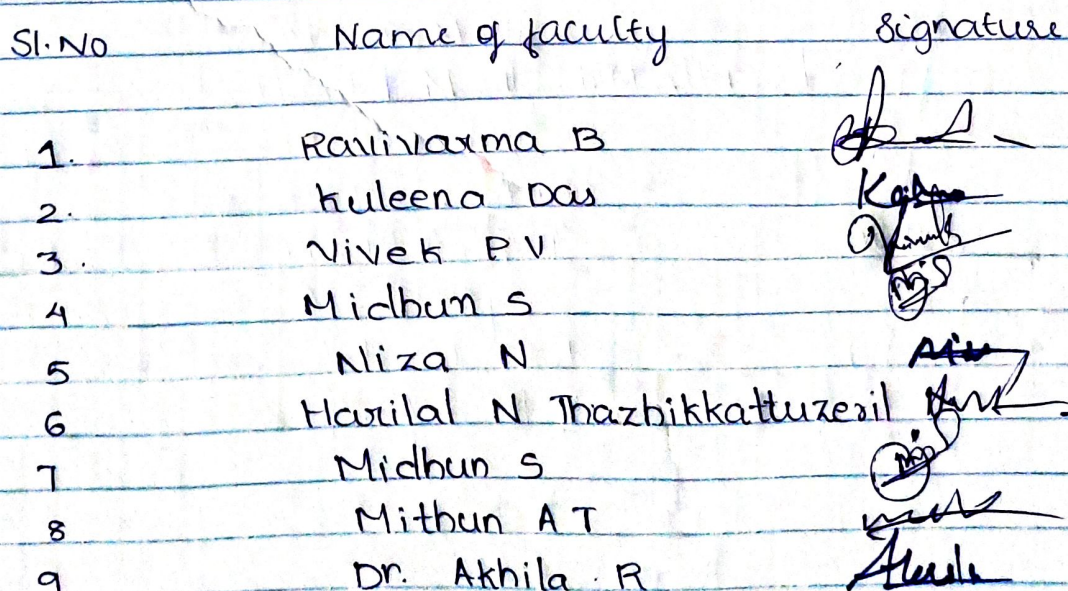 Sl.No Name of faculty Signature
1. Ravivarma B
2. Kuleena Das
3. Vivek P V
4 Midhun S
5 Niza N
6 Harilal N Thazhikkattuzeril
7 Midhun S
8 Mithun A T
9 Dr. Akhila R